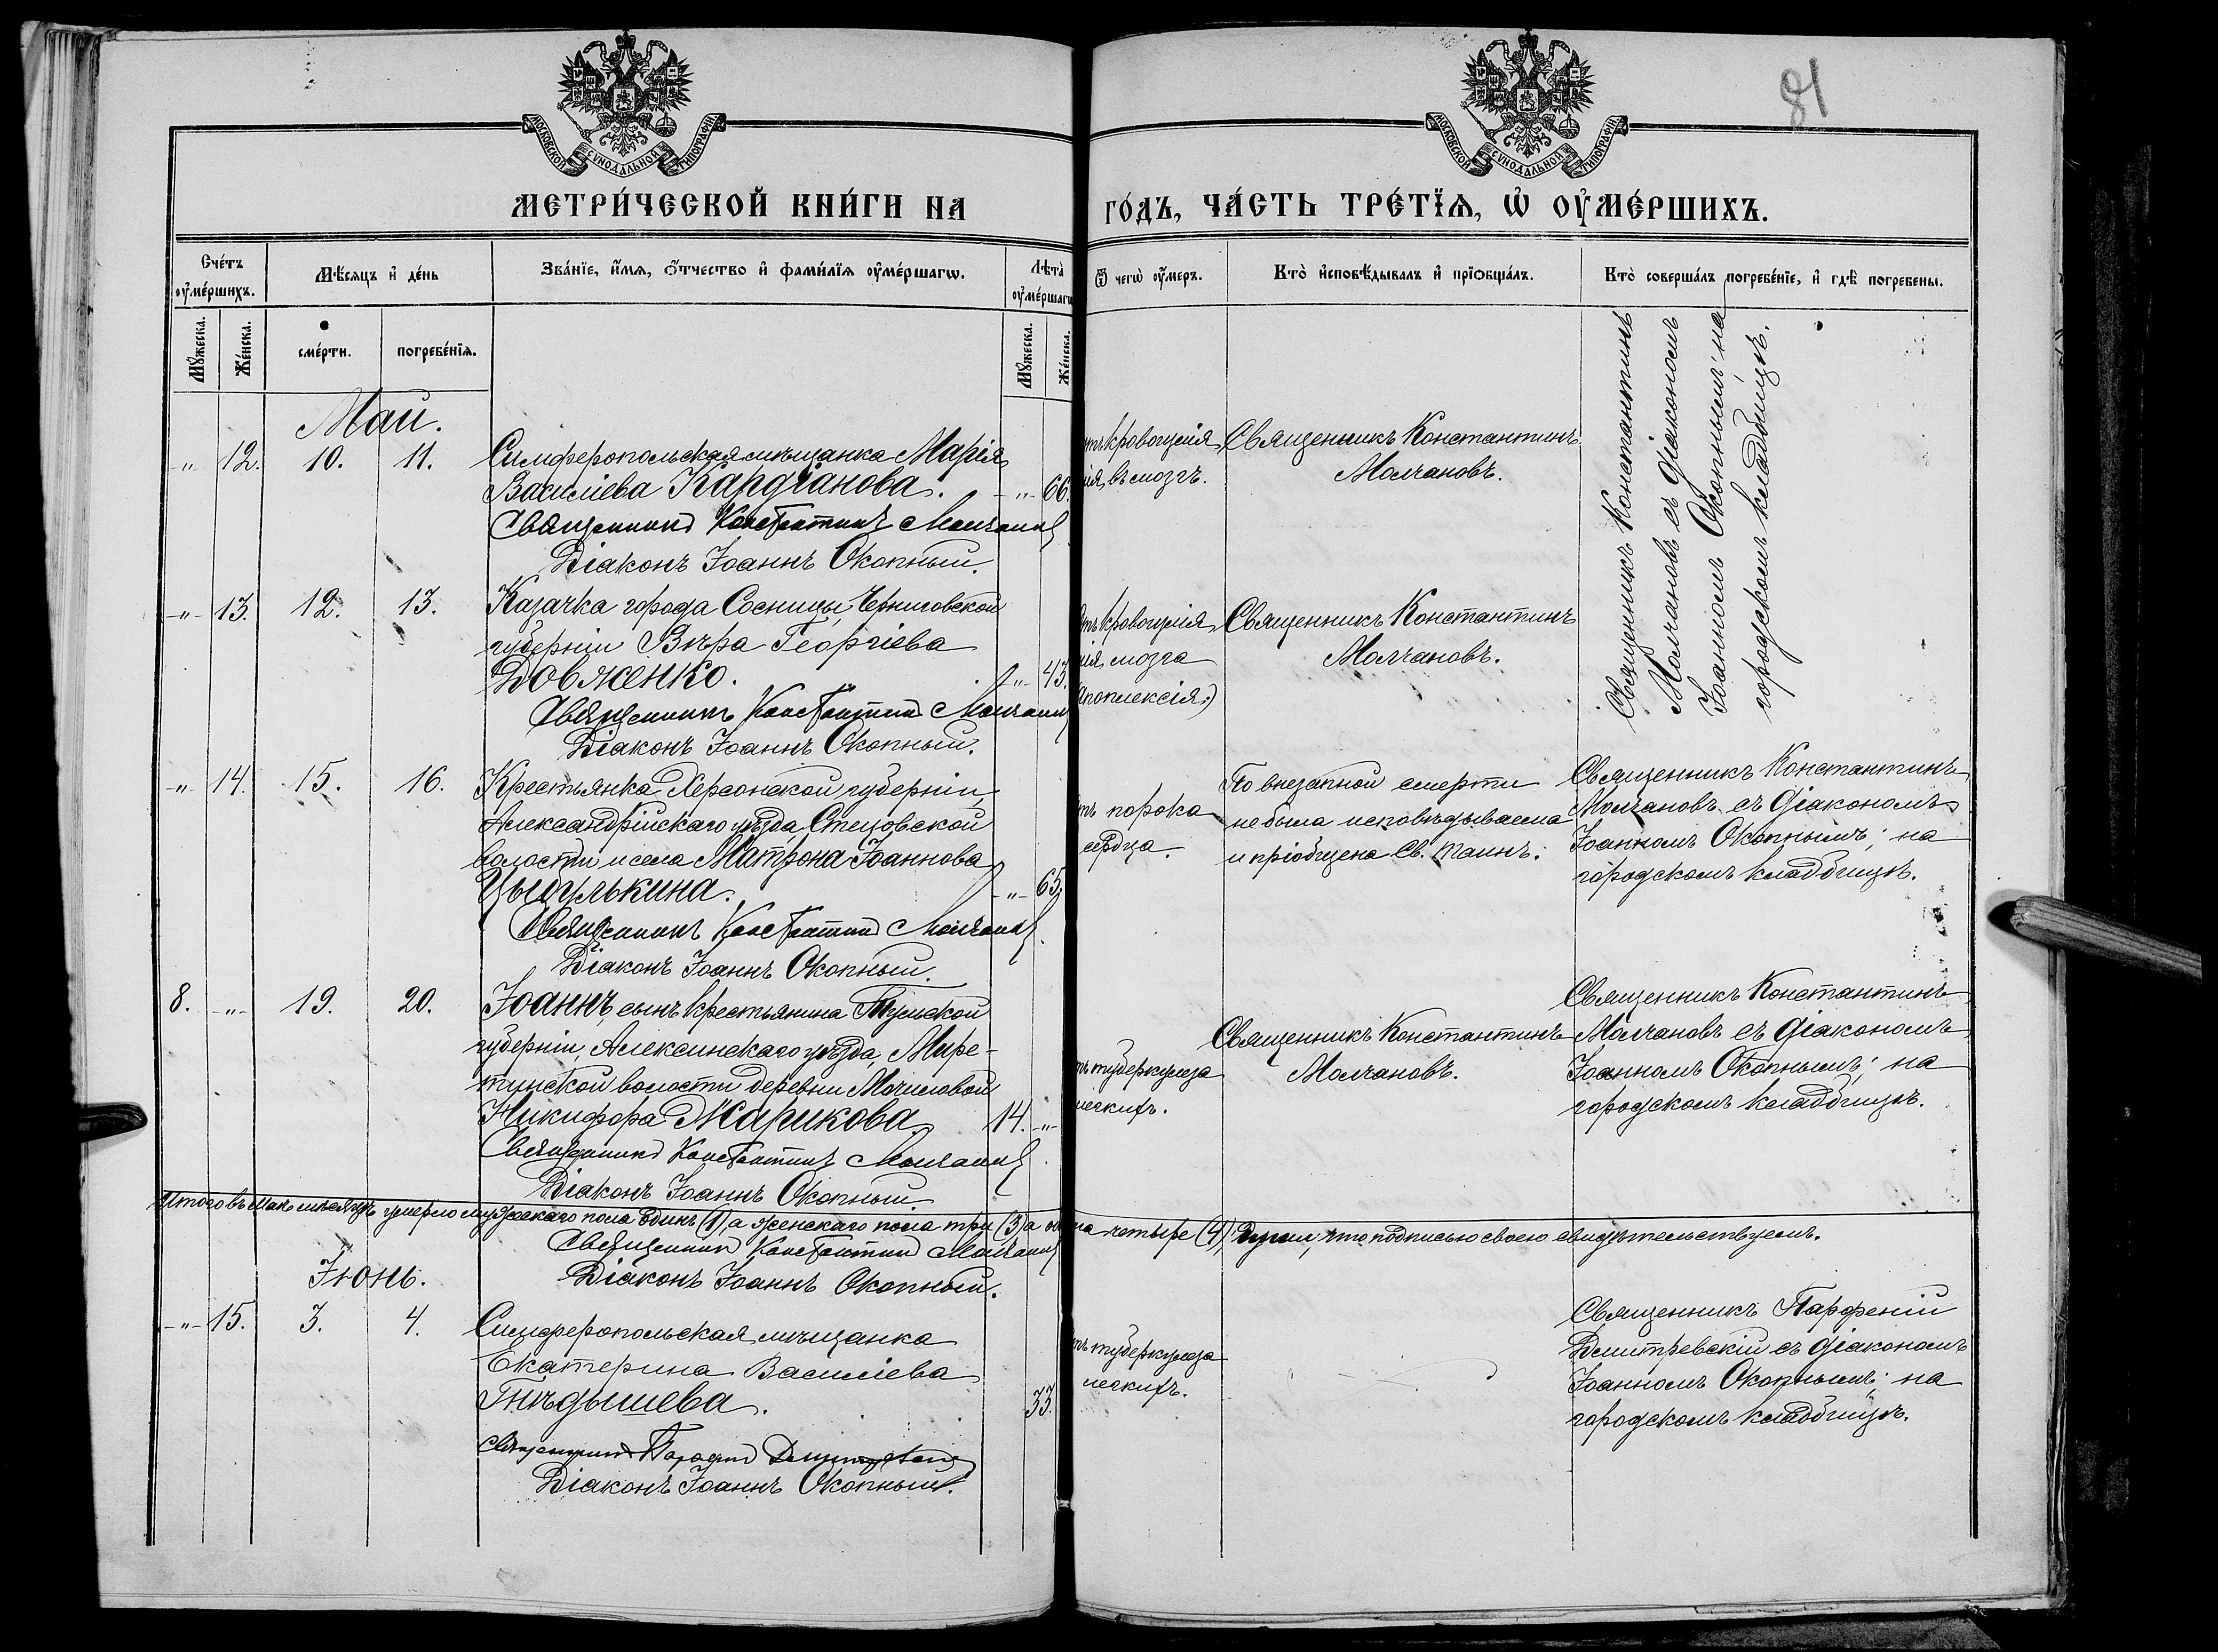 81
МОСКОВСКОЙ СѴНОДАЛЬНОЙ ТИПОГРАФІИ
МОСКОВСКОЙ СѴНОДАЛЬНОЙ ТИПОГРАФІИ
МЕТРИ́ЧЕСКОЙ КНИ́ГИ НА ГО́ДЪ, ЧА́СТЬ ТРЕ́ТЇѦ, Ѡ҆ ОУ҆МЕ́РШИХЪ.
Сче́тъ оу҆ме́ршихъ.
Мѣ́сѧцъ и҆ де́нь
Зва́нїе, и҆́мѧ, ѻ҆́тчество и҆ фами́лїѧ оу҆ме́ршагѡ.
Лѣ́та оу҆ме́ршагѡ
Ѿ чегѡ̀ оу҆́меръ.
Кто̀ и҆сповѣ́дывалъ и҆ прїѻбща́лъ.
Кто̀ соверша́лъ погребе́нїе, и҆ гдѣ̀ погребены.
Мꙋ́жеска.
Же́нска.
сме́рти.
погребе́нїѧ.
Мꙋ́жеска.
Же́нска.
Май.
-"- 12. 10. 11. Симферопольская мѣщанка Марія
Василіева Кардіанова. -"- 66.
Священникъ Константинъ Молчановъ
Діаконъ Іоаннъ Окопный.
тъ кровоизлія
нія въ мозгъ.
Священникъ Константинъ
Молчановъ.
Священникъ Константинъ
Молчановъ съ діакономъ
Іоанномъ Окопнымъ; на
городскомъ кладбищѣ.
-"- 13. 12. 13. Казачка города Сосницы, Черниговской
губерніи Вѣра Георгіева
Довженко. -"- 43.
Священникъ Константинъ Молчановъ
Діаконъ Іоаннъ Окопный.
тъ кровоизлія
нія мозга
апоплексія.)
Священникъ Константинъ
Молчановъ.
-"- 14. 15. 16. Крестьянка Херсонской губерніи,
Александрійскаго уѣзда, Стецовской
волости и села Матрона Іоаннова
Цыцулькина. -"- 65.
Священникъ Константинъ Молчановъ
Діаконъ Іоаннъ Окопный.
тъ порока
сердца.
По внезапной смерти
не была исповѣдываема
и пріобщена Св. Таинъ.
Священникъ Константинъ
Молчановъ съ діакономъ
Іоанномъ Окопнымъ; на
городскомъ кладбищѣ.
8. -"- 19. 20. Іоаннъ, сынъ крестьянина Тульской
губерніи, Алексинскаго уѣзда, Мире-
тинской волости деревни Мочиловой
Никифора Жарикова. 14. -"-
Священникъ Константинъ Молчановъ
Діаконъ Іоаннъ Окопный.
тъ туберкулеза
легкихъ.
Священникъ Константинъ
Молчановъ.
Священникъ Константинъ
Молчановъ съ діакономъ
Іоанномъ Окопнымъ; на
городскомъ кладбищѣ.
Итого въ Маѣ мѣсяцѣ умерло мужескаго пола одинъ (1), а женскаго пола три (3) а обоего четыре (4) души, что подписью своею свидѣтельствуемъ.
Священникъ Константинъ Молчановъ
Діаконъ Іоаннъ Окопный.
Іюнь.
-"- 15. 3. 4. Симферопольская мѣщанка
Екатерина Василіева
Гнѣдышева. 33.
Священникъ Парфеній Дмитревскій
Діаконъ Іоаннъ Окопный.
тъ туберкулеза
легкихъ.
Священникъ Парфеній
Дмитревскій съ діакономъ
Іоанномъ Окопнымъ; на
городскомъ кладбищѣ.